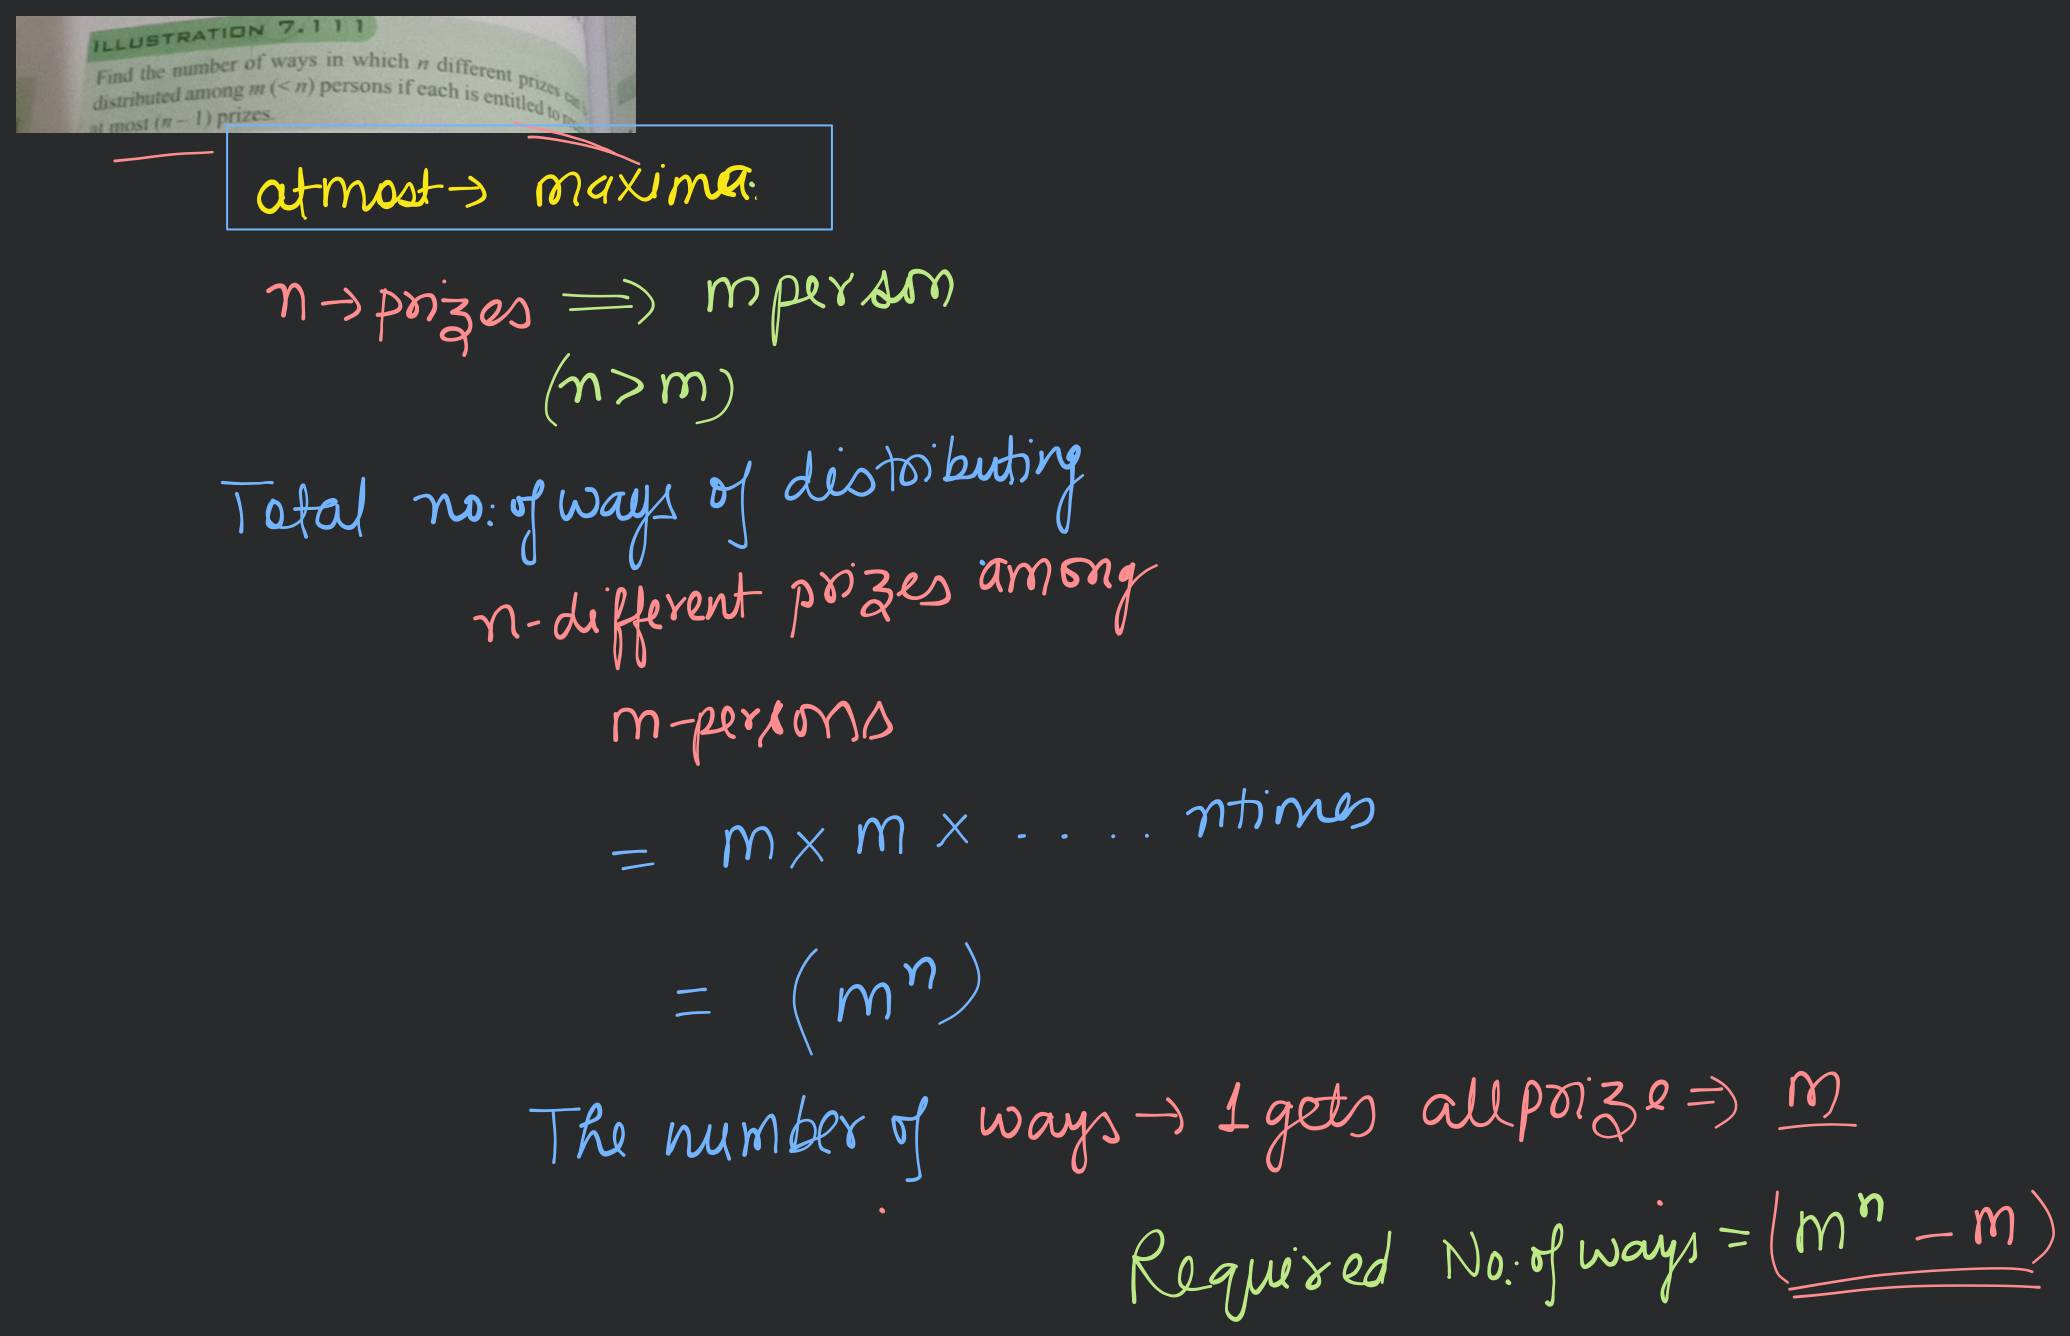 ILLUSTRATION 7.111
Find the number of ways in which n different prizes can
distributed among m (< n) persons if each is entitled to
at most (n − 1) prizes.
atmost → maxima.
n → prizes ⟹ m person
(n > m)
Total no. of ways of distributing
n-different prizes among
m-persons
= m × m × . . . . n times
= (mⁿ)
The number of ways → 1 gets all prize ⇒ m
Required No. of ways = (mⁿ − m)